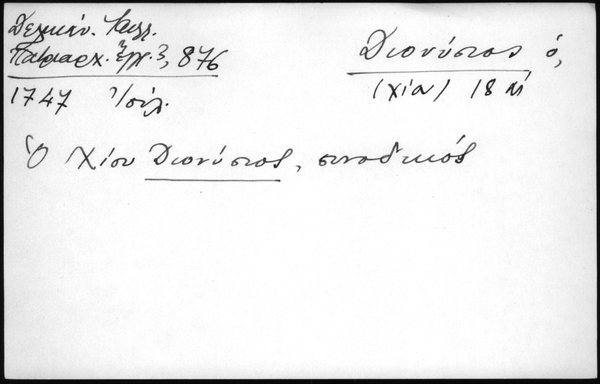 Δελικάν. Καλλ.
Πατριαρχ. Ἔγγ. 3, 876
1747 Ἰούλ.
Διονύσιος ὁ,
(Χίου) 18 αἰ
Ὁ Χίου Διονύσιος, συνοδικός